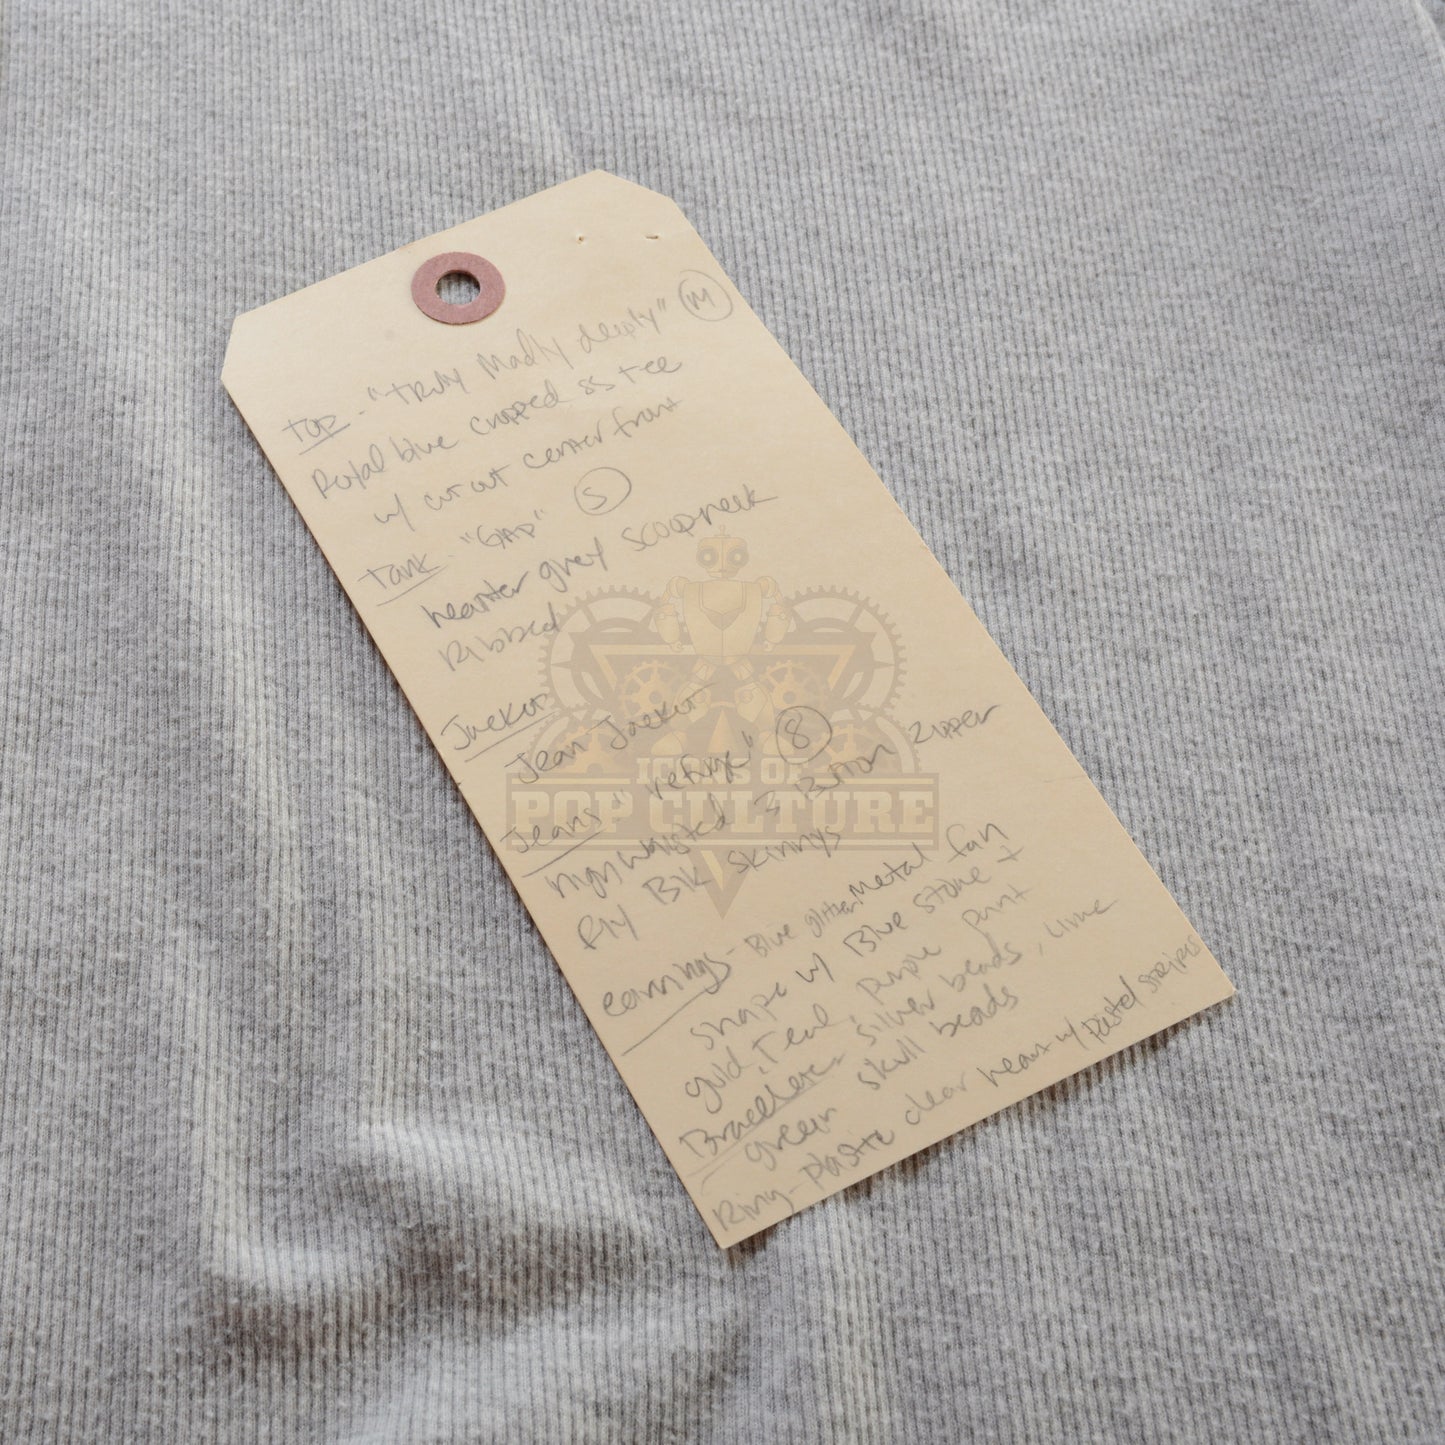 Top - "Truly Madly deeply" M
Royal blue cropped ss tee
w/ cut out center front
Tank - "GAP" S
heather grey scoopneck
Ribbed
Jacket
Jean Jacket
Jeans "refuge" 8
high waisted 3 Button Zipper
fly Blk skinnys
earrings - Blue glitter metal fan
shape w/ Blue stone +
gold, Teal, purple paint
Bracelets silver beads, lime
green skull beads
Ring - Plastic clear heart w/ pastel stripes
ICONS OF
POP CULTURE